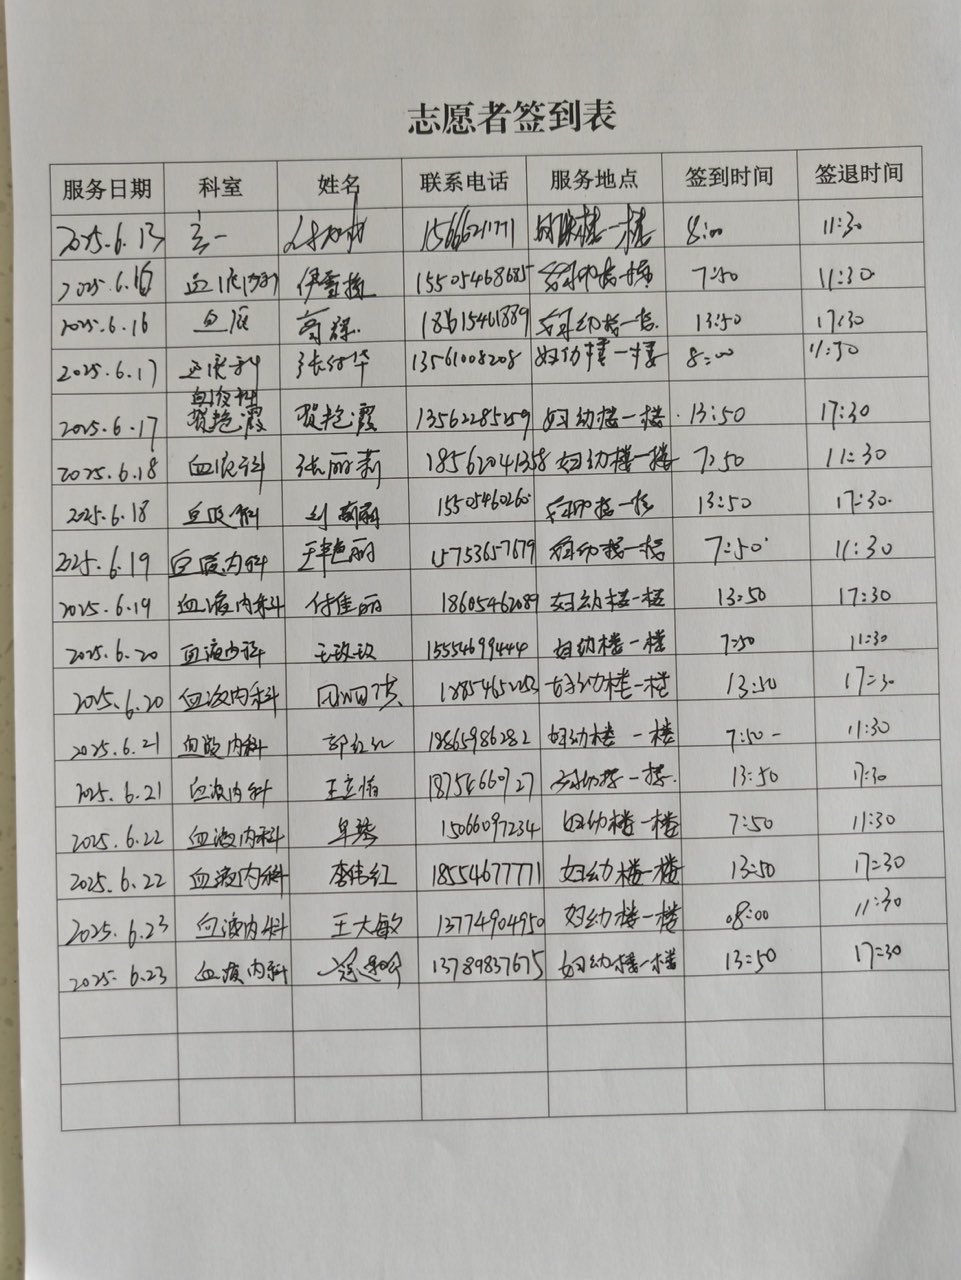 志愿者签到表
服务日期 科室 姓名 联系电话 服务地点 签到时间 签退时间
2025.6.13 8:00 11:30
2025.6.16 血液内科 15505468685 7:50 11:30
2025.6.16 血液 18615461889 妇幼楼一楼 13:50 17:30
2025.6.17 血液科 13561008208 妇幼楼一楼 8:00 11:30
血液科
2025.6.17 贺艳霞 贺艳霞 13562285259 妇幼楼一楼 13:50 17:30
2025.6.18 血液科 张丽莉 18562041358 妇幼楼一楼 7:50 11:30
2025.6.18 血液科 15505460260 妇幼楼一楼 13:50 17:30
2025.6.19 血液内科 15753657679 妇幼楼一楼 7:50 11:30
2025.6.19 血液内科 付佳丽 18605462089 妇幼楼一楼 13:50 17:30
2025.6.20 血液内科 王玫玫 15554699444 妇幼楼一楼 7:50 11:30
2025.6.20 血液内科 妇幼楼一楼 13:50 17:30
2025.6.21 血液内科 郭红红 18865986282 妇幼楼一楼 7:50 11:30
2025.6.21 血液内科 18754660727 妇幼楼一楼 13:50 17:30
2025.6.22 血液内科 15066097234 妇幼楼一楼 7:50 11:30
2025.6.22 血液内科 李伟红 18554677771 妇幼楼一楼 13:50 17:30
2025.6.23 血液内科 王大敏 13774904950 妇幼楼一楼 08:00 11:30
2025.6.23 血液内科 13789837675 妇幼楼一楼 13:50 17:30